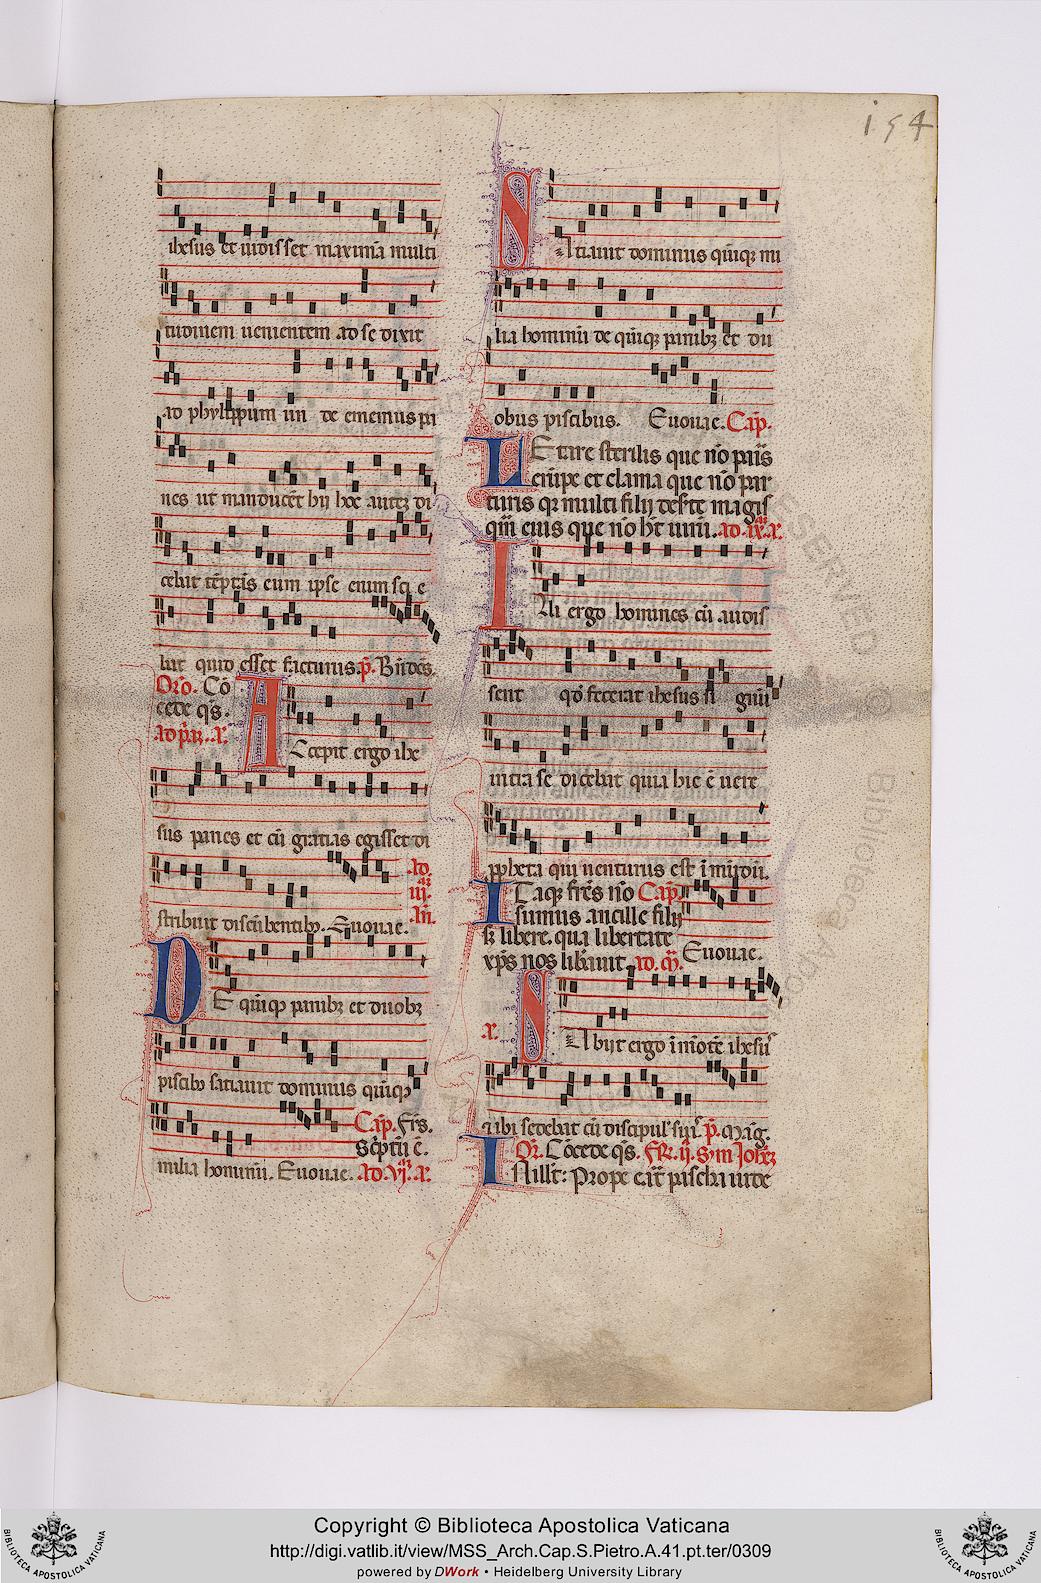 i54
ihesus et uidisset maxima multi
tudinem uenientem ad se dixit
ad phylippum un de ememus pa
nes ut manducet hij hoc autez di
cebat teptas eum ipse enim sci e
bat quid esset facturus. p. Bndes.
Oro. Co
cede qs.
ad pa. a.
Accepit ergo ihe
sus panes et cu gratias egisset di
ad
iij.
An.
stribuit discubentib. Euouae.
DE quiq panibz et duobz
piscib satiauit dominus quiqz
Cap. Frs.
Scptu e.
milia hominu. Euouae. Ad. vj. a.
Satiauit dominus quiqz mi
lia hominu de quiqz panibz et du
obus piscibus. Euouae. Cap.
LEtare sterilis que no paris
erupe et clama que no par
turis qz multi filij deserte magis
qm eius que no ht uiru. ad. ix. a.
Illi ergo homines cu uidis
sent qd fecerat ihesus si gnu
intra se dicebat quia hic e uere
ppheta qui uenturus est i mudu.
ITaqz fres no Cap.
sumus ancille filij
sz libere. qua libertate
Euouae.
xps nos libauit. ad. m.
a.
SUbijt ergo i mote ihesu
a ibi sedebat cu discipul' suis. p. Mag.
Or. Cocede qs. Fr. ij. Sym Johez
INillt: Prope eat pascha iude
ESERVED
Biblioteca Apos
Copyright © Biblioteca Apostolica Vaticana
http://digi.vatlib.it/view/MSS_Arch.Cap.S.Pietro.A.41.pt.ter/0309
powered by DWork • Heidelberg University Library
BIBLIOTECA APOSTOLICA VATICANA
BIBLIOTECA APOSTOLICA VATICANA